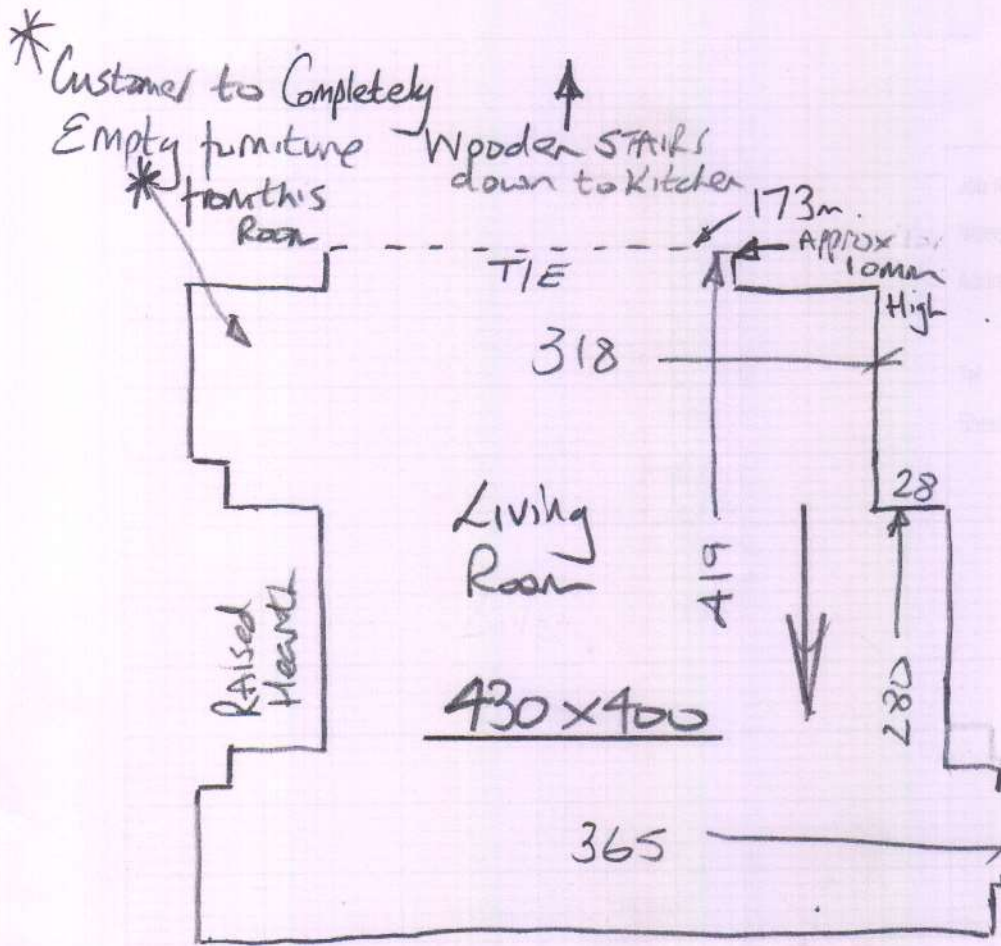 * Customer to Completely
Empty furniture
* from this
Room
Wooden STAIRS
down to Kitchen
173m.
Approx
10mm
High
T/E
318
28
Living
Room
419
Raised
Hearth
430 x 400
280
365